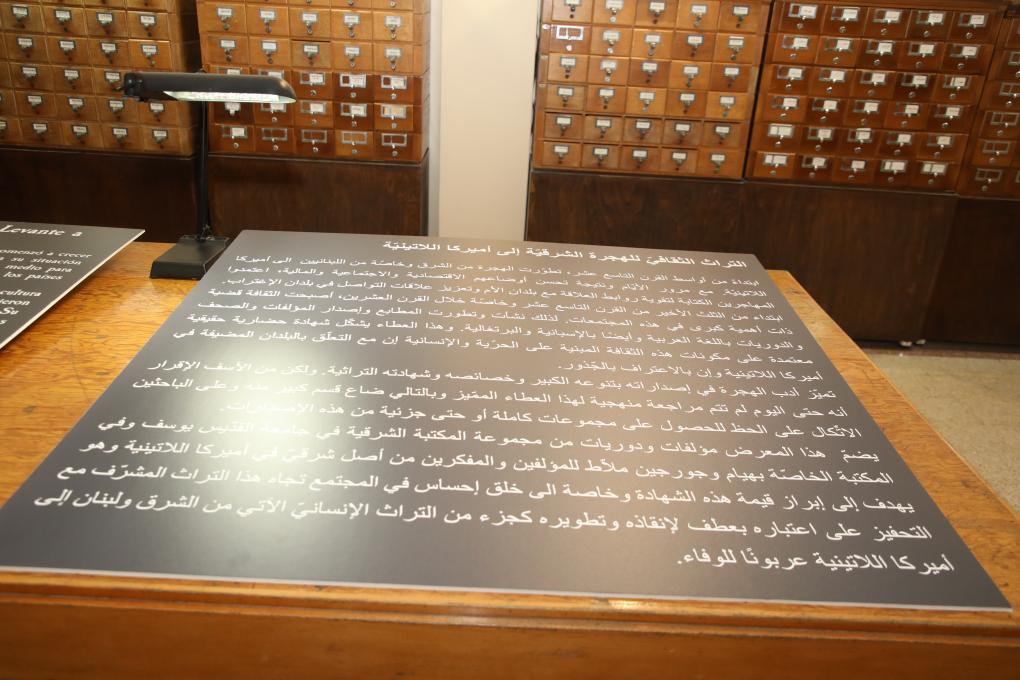 Levante a
comenzó a crecer
su situación
medio para
los países
cultura
Su
التراث الثقافيّ للهجرة الشرقيّة إلى أميركا اللاتينيّة
ابتداءً من أواسط القرن التاسع عشر، تطوّرت الهجرة من الشرق وخاصّة من اللبنانيين إلى أميركا
اللاتينيّة مع مرور الأيّام ونتيجة تحسن أوضاعهم الإقتصادية والاجتماعية والمالية، اعتمدوا
مهجورين الكتابة لتقوية روابط العلاقة مع بلدان الأم وتعزيز علاقات التواصل في بلدان الإغتراب.
ابتداءً من الثلث الأخير من القرن التاسع عشر وخاصّة خلال القرن العشرين، أصبحت الثقافة قضية
ذات أهمية كبرى في هذه المجتمعات. لذلك نشأت وتطورت المطابع وإصدار المؤلفات والصحف
والدوريات باللغة العربية وأيضًا بالإسبانية والبرتغالية. وهذا العطاء يشكّل شهادة حضارية حقيقية
معتمدة على مكونات هذه الثقافة المبنية على الحرّية والإنسانية إن مع التعلّق بالبلدان المضيفة في
أميركا اللاتينية وإن بالاعتراف بالجّذور.
تميّز أدب الهجرة في إصداراته بتنوعه الكبير وخصائصه وشهادته التراثية. ولكن من الأسف الإقرار
أنه حتى اليوم لم تتم مراجعة منهجية لهذا العطاء المميّز وبالتالي ضاع قسم كبير منه وعلى الباحثين
الاتّكال على الحظ للحصول على مجموعات كاملة أو حتى جزئية من هذه الإصدارات.
يضمّ هذا المعرض مؤلفات ودوريات من مجموعة المكتبة الشرقية في جامعة القدّيس يوسف وفي
المكتبة الخاصّة بهيام وجورجين ملاّط للمؤلفين والمفكرين من أصل شرقيّ في أميركا اللاتينية وهو
يهدف إلى إبراز قيمة هذه الشهادة وخاصة الى خلق إحساس في المجتمع تجاه هذا التراث المشرّف مع
التحفيز على اعتباره بعطف لإنقاذه وتطويره كجزء من التراث الإنسانيّ الآتي من الشرق ولبنان إلى
أميركا اللاتينية عربونًا للوفاء.